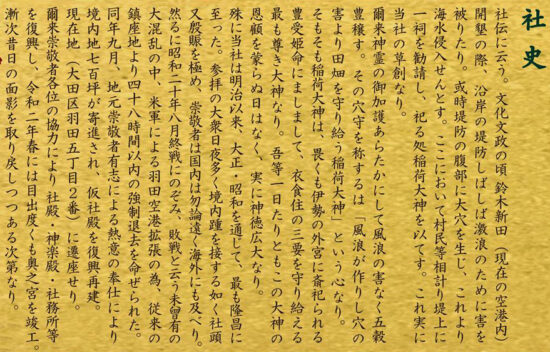 社史
社伝に云う。文化文政の頃 鈴木新田（現在の空港内）
開墾の際、沿岸の堤防しばしば激浪のために害を
被りたり。或時堤防の腹部に大穴を生じ、これより
海水侵入せんとす。ここにおいて村民等相計り堤上に
一祠を勧請し、祀る処稲荷大神を以てす。これ実に
当社の草創なり。
爾来神霊の御加護あらたかにして風浪の害なく五穀
豊穣す。その穴守を称するは「風浪が作りし穴の
害より田畑を守り給う稲荷大神」という心なり。
そもそも稲荷大神は、畏くも伊勢の外宮に斎祀られる
豊受姫命にましまして、衣食住の三要を守り給える
最も尊き大神なり。吾等一日たりともこの大神の
恩顧を蒙らぬ日はなく、実に神徳広大なり。
殊に当社は明治以来、大正・昭和を通して、最も隆昌に
至った。参拝の大衆日夜多く境内踵を接する如く社頭
又殷賑を極め、崇敬者は国内は勿論遠く海外にも及べり。
然るに昭和二十年八月終戦にのぞみ、敗戦と云う未曾有の
大混乱の中、米軍による羽田空港拡張の為、従来の
鎮座地より四十八時間以内の強制退去を命ぜられた。
同年九月、地元崇敬者有志による熱意の奉仕により
境内地七百坪が寄進され、仮社殿を復興再建。
現在地（大田区羽田五丁目２番）に遷座せり。
爾来崇敬者各位の協力により 社殿・神楽殿・社務所等
を復興し、令和二年春には目出度くも奥之宮を竣工。
漸次昔日の面影を取り戻しつつある次第なり。